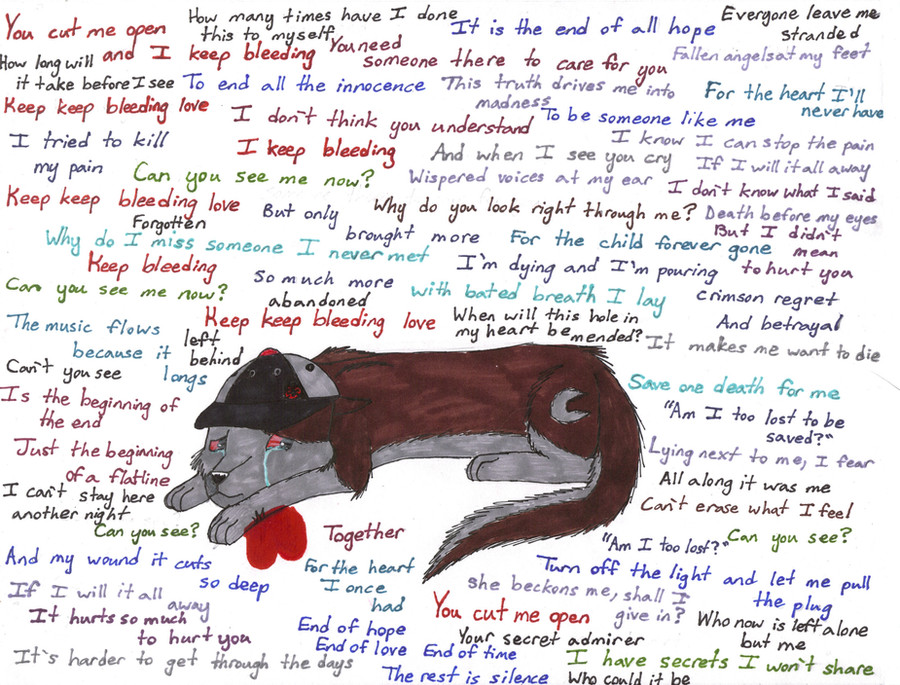 You cut me open
How many times have I done
this to myself
It is the end of all hope
Everyone leave me
stranded
How long will
it take before I see
and I keep bleeding
You need
someone there to care for you
Fallen angels at my feet
To end all the innocence
This truth drives me into
madness
For the heart I'll
never have
Keep keep bleeding love
I don't think you understand
To be someone like me
I tried to kill
my pain
I keep bleeding
And when I see you cry
I know I can stop the pain
If I will it all away
Can you see me now?
Wispered voices at my ear
I don't know what I said
Keep keep bleeding love
Forgotten
But only
brought more
Why do you look right through me?
Death before my eyes
But I didn't
mean
to hurt you
Why do I miss someone I never met
For the child forever gone
Keep bleeding
So much more
I'm dying and I'm pouring
crimson regret
Can you see me now?
abandoned
with bated breath I lay
And betrayal
The music flows
because it
longs
left
behind
Keep keep bleeding love
When will this hole in
my heart be mended?
It makes me want to die
Can't you see
Save one death for me
Is the beginning of
the end
"Am I too lost to be
saved?"
Just the beginning
of a flatline
Lying next to me, I fear
All along it was me
I can't stay here
another night
Can't erase what I feel
Can you see?
Together
"Am I too lost?"
Can you see?
And my wound it cuts
so deep
For the heart
I once
had
Turn off the light and let me pull
the plug
If I will it all
away
she beckons me, shall I
give in?
It hurts so much
to hurt you
End of hope
End of love
End of time
You cut me open
Who now is left alone
but me
Your secret admirer
Who could it be
It's harder to get through the days
The rest is silence
I have secrets I won't share